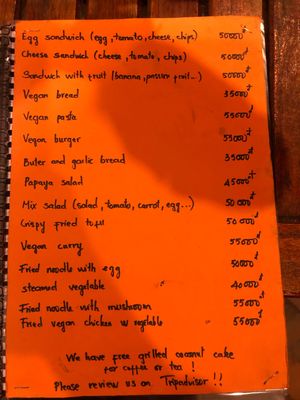 Egg sandwich (egg, tomato, cheese, chips) 50000đ
Cheese sandwich (cheese, tomato, chips) 50000đ
Sandwich with fruit (banana, passion fruit...) 50000đ
Vegan bread 35000đ
Vegan pasta 55000đ
Vegan burger 55000đ
Buter and garlic bread 35000đ
Papaya salad 45000đ
Mix salad (salad, tomato, carrot, egg...) 50 000đ
Crispy fried tofu 50 000đ
Vegan curry 55000đ
Fried noodle with egg 50000đ
steamed vegetable 40000đ
Fried noodle with mushroom 55000đ
Fried vegan chicken w vegetable 55000đ
We have free grilled coconut cake
for coffee or tea !
Please review us on Tripadvisor !!